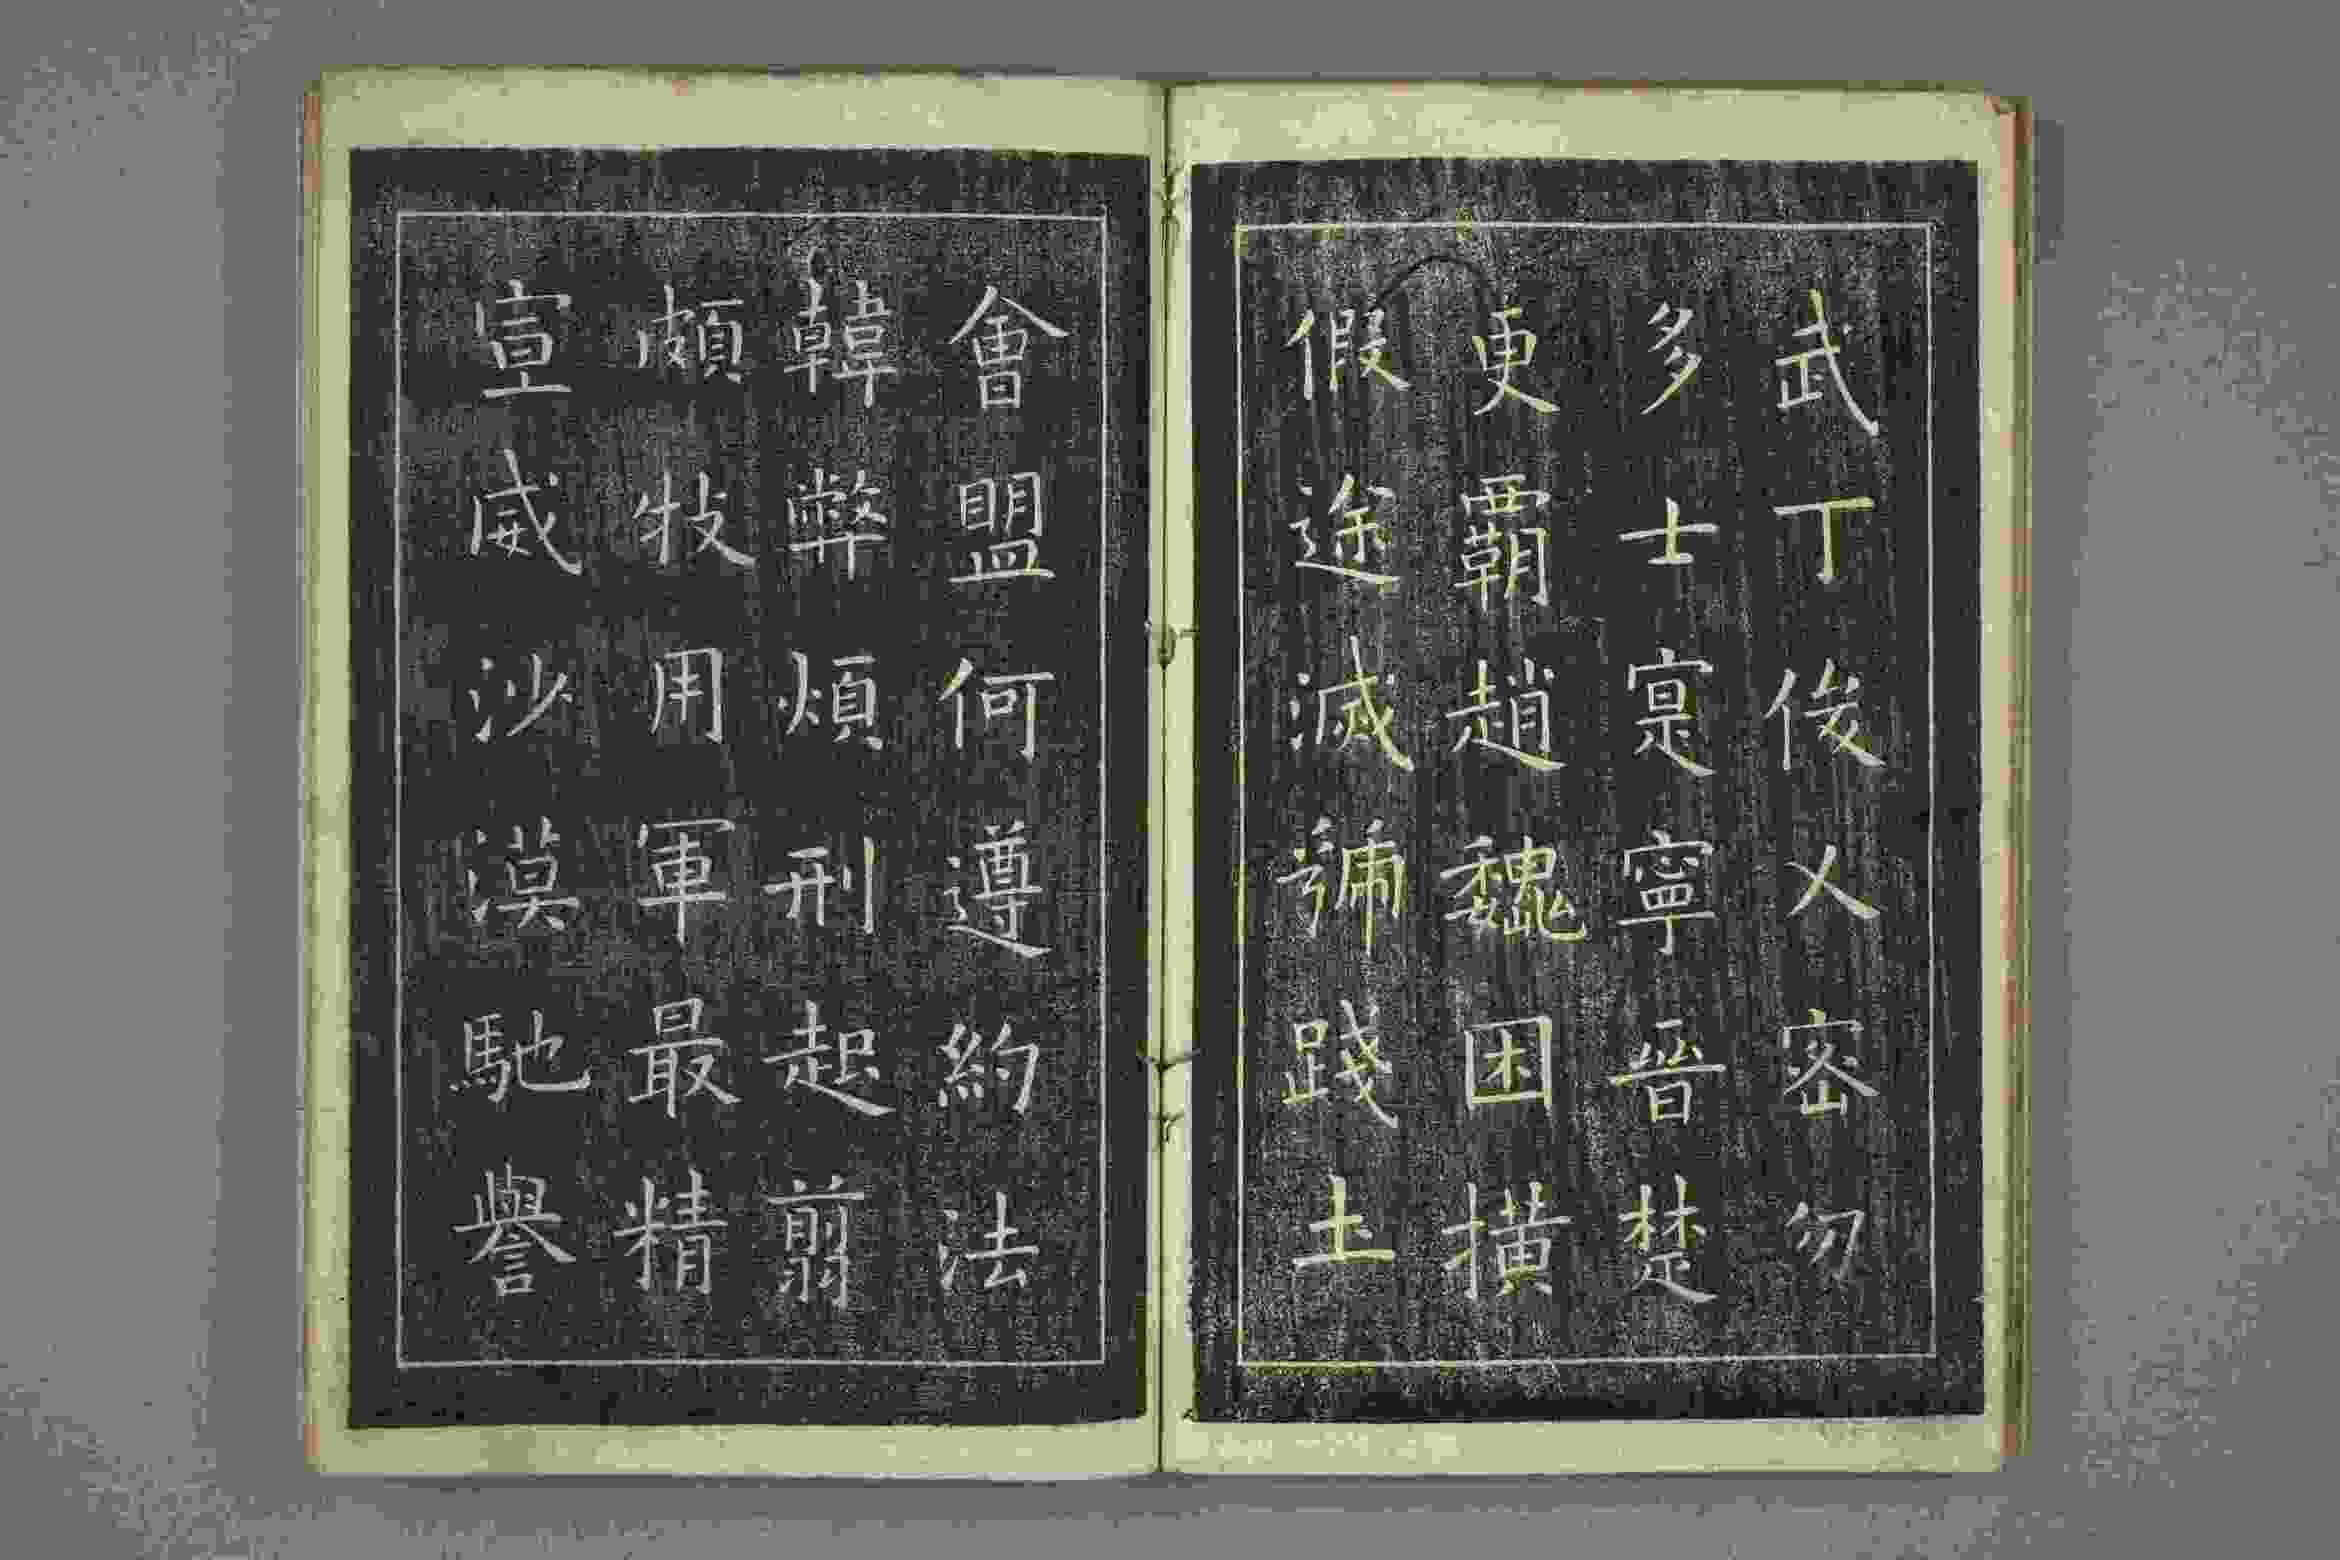 武丁俊乂密勿
多士寔寧晉楚
更覇趙魏困撗
假途滅虢踐土
會盟何遵約法
韓弊煩刑起翦
頗牧用軍最精
宣威沙漠馳譽